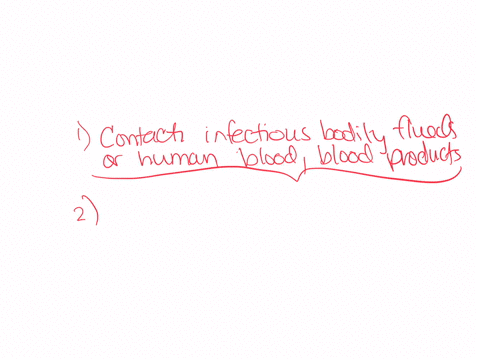 1) Contach infectious bodily fluods
or human blood, blood products
2)